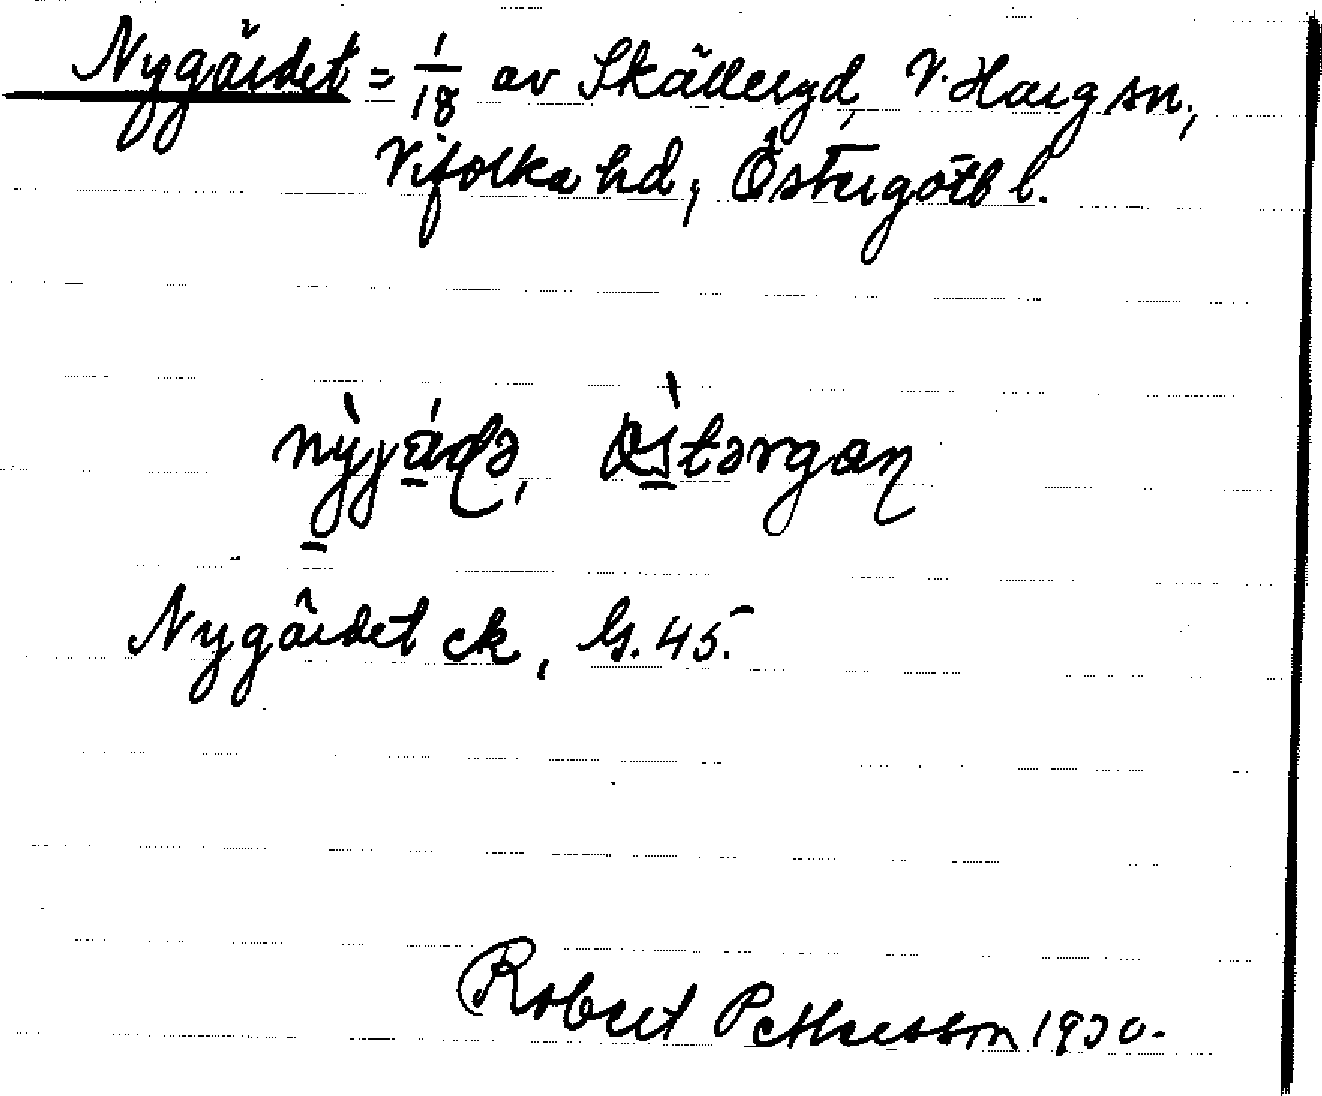 Nygärdet = 1/18 av Skälleryd, V. Harg sn,
Vifolka hd, Östergötl l.
Nygärdet ek, G. 45.
Robert Pettersson 1930.